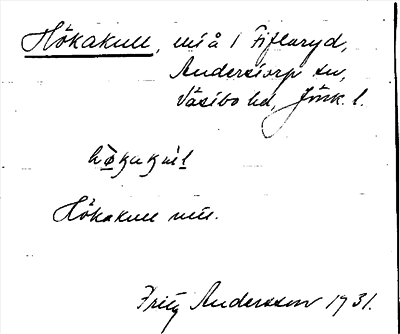 Hökakull, mså i Fifleryd,
Anderstorp sn,
Västbo hd, Jönk. l.
Hökakull
Fritz Andersson 1931.